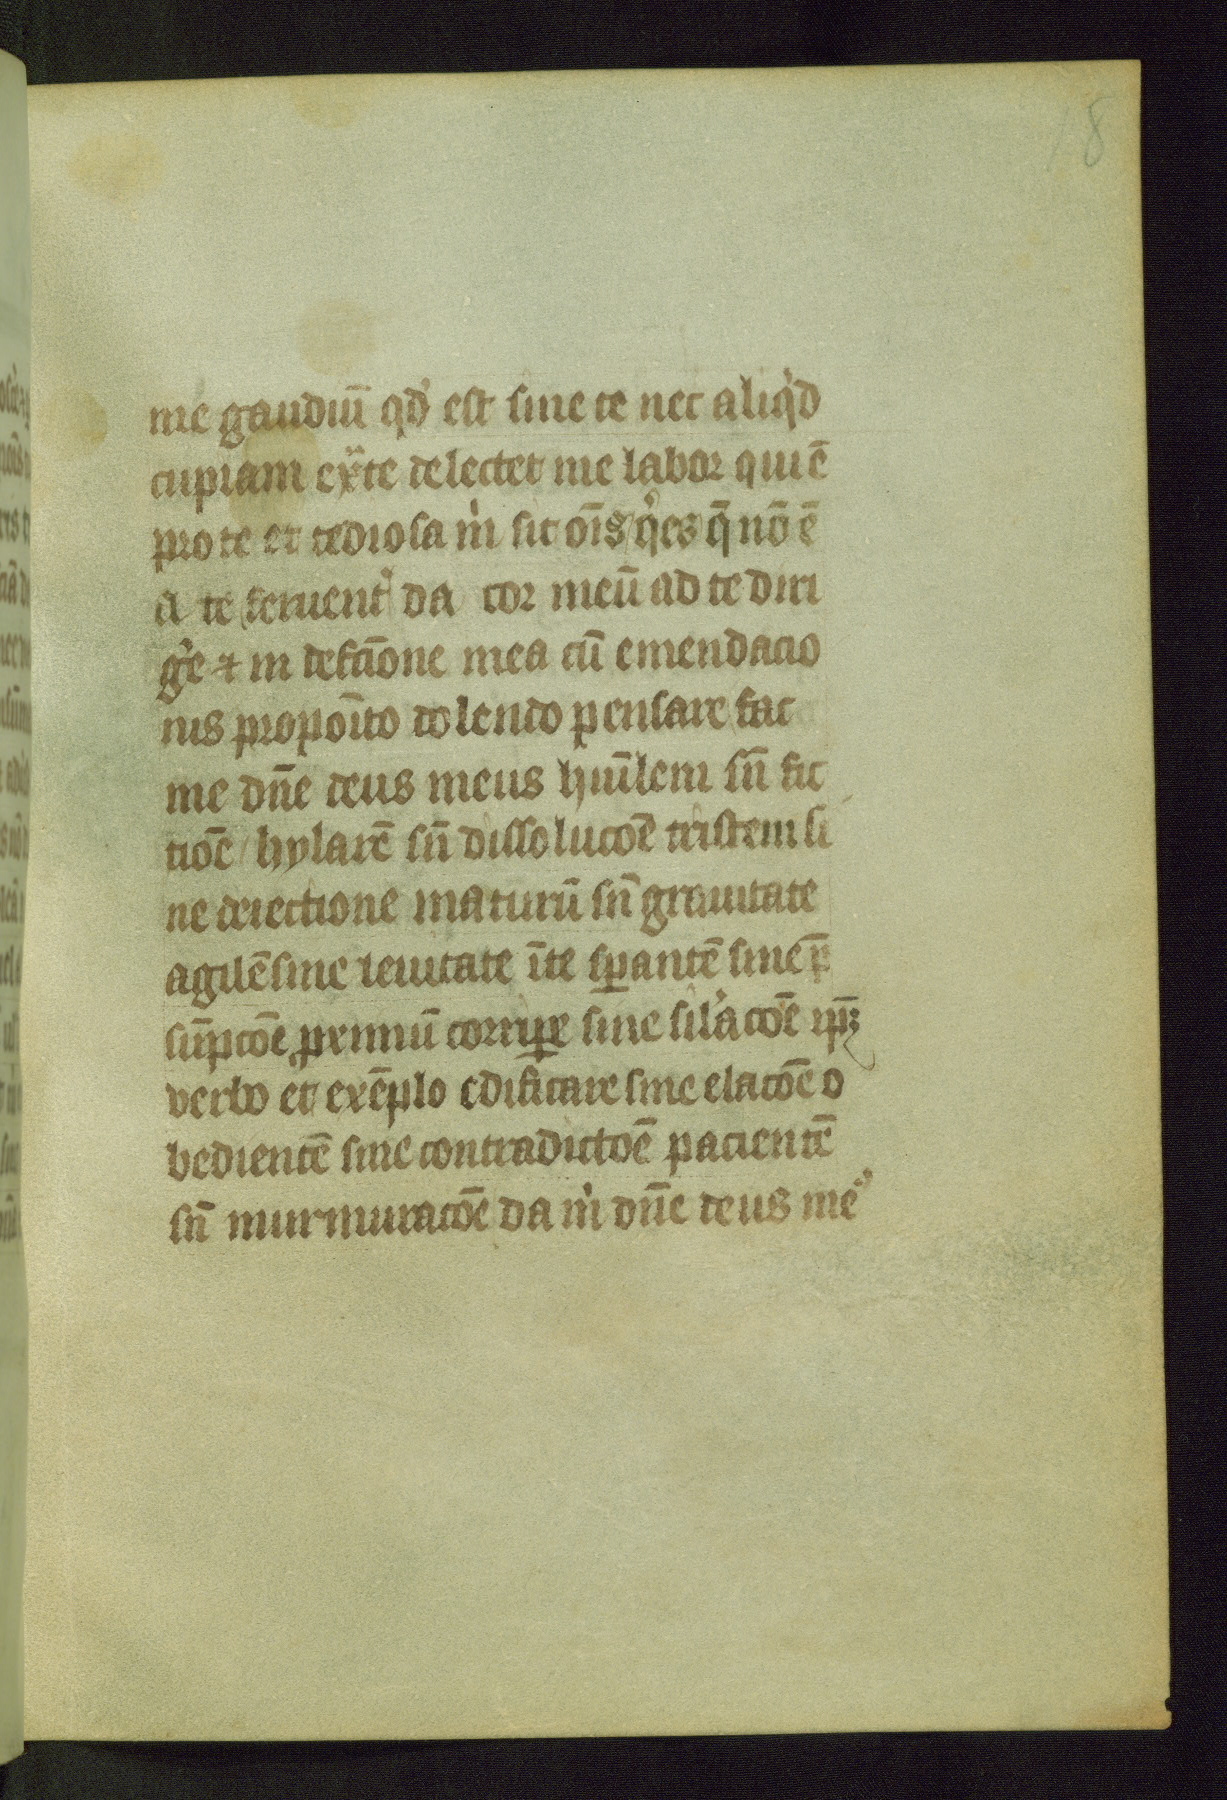 18
me gaudiū qd' est sine te nec aliq'd
cupiam ex̄ te delectet me labor qui ē
pro te et tediosa m' sit oīs q'es q̄ nō ē
a te feruent' da cor meū ad te diri
g'e ⁊ in defcīone mea cū emendacio
nis propoīto dolendo pensare fac
me dn̄e deus meus hūīlem sn̄ fic
tiōē hylarē sn̄ dissolucōē tristem si
ne deiectione maturū sn̄ grauitate
agilē sine leuitate ī te sꝑantē sine p̄
sūpcōe ꝓximū corriꝑe sine sil'acōē ip̄ꝫ
verbo et exēplo edificare sine elacōē o
bedientē sine contradictōē pacientē
sn̄ murmuracōē da m' dn̄e deus me'